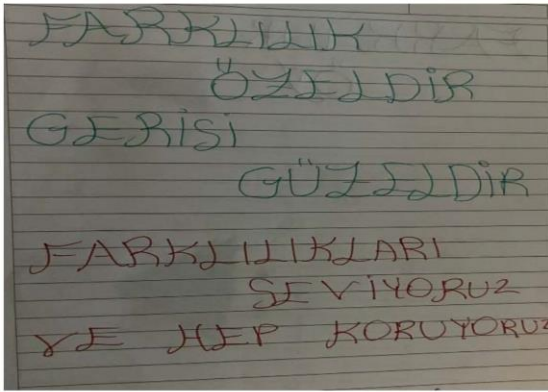 FARKLILIK
ÖZELDİR
GERİSİ
GÜZELDİR
FARKLILIKLARI
SEVİYORUZ
VE HEP KORUYORUZ